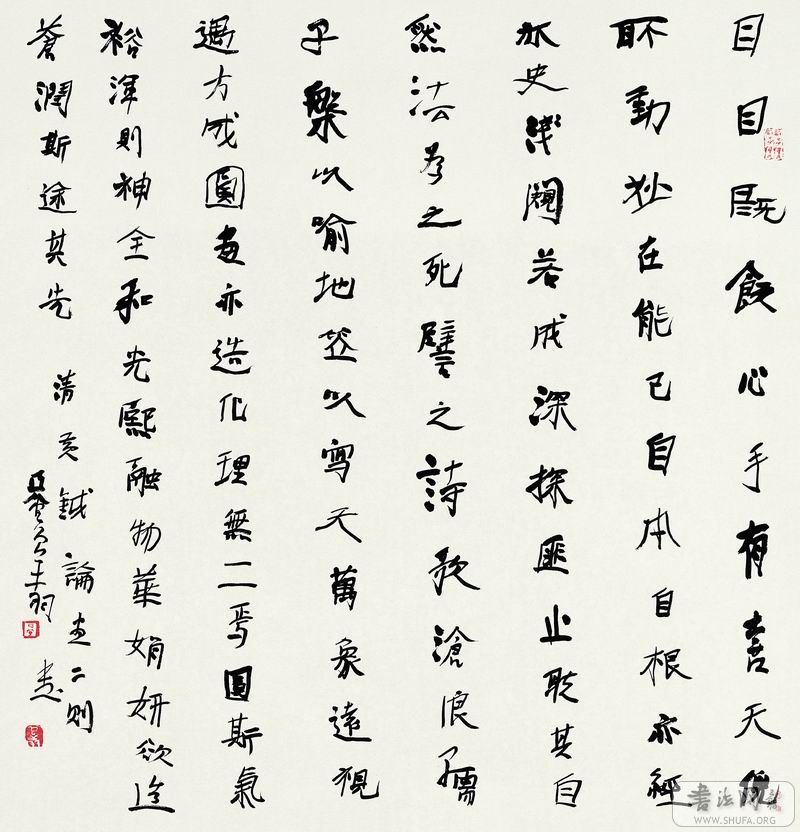 目目既飫心手有喜天倪
所動妙在能已自本自根亦經
亦史淺闚若成深探匪止聽其自
然法為之死譬之詩歌滄浪孺
子槃以喻地笠以寫天萬象遠視
遇方成圓畫亦造化理無二焉圓斯氣
裕渾則神全和光熙融物華娟妍欲造
蒼潤斯途其先
清黃鉞論畫二則
書法网
WWW.SHUFA.ORG